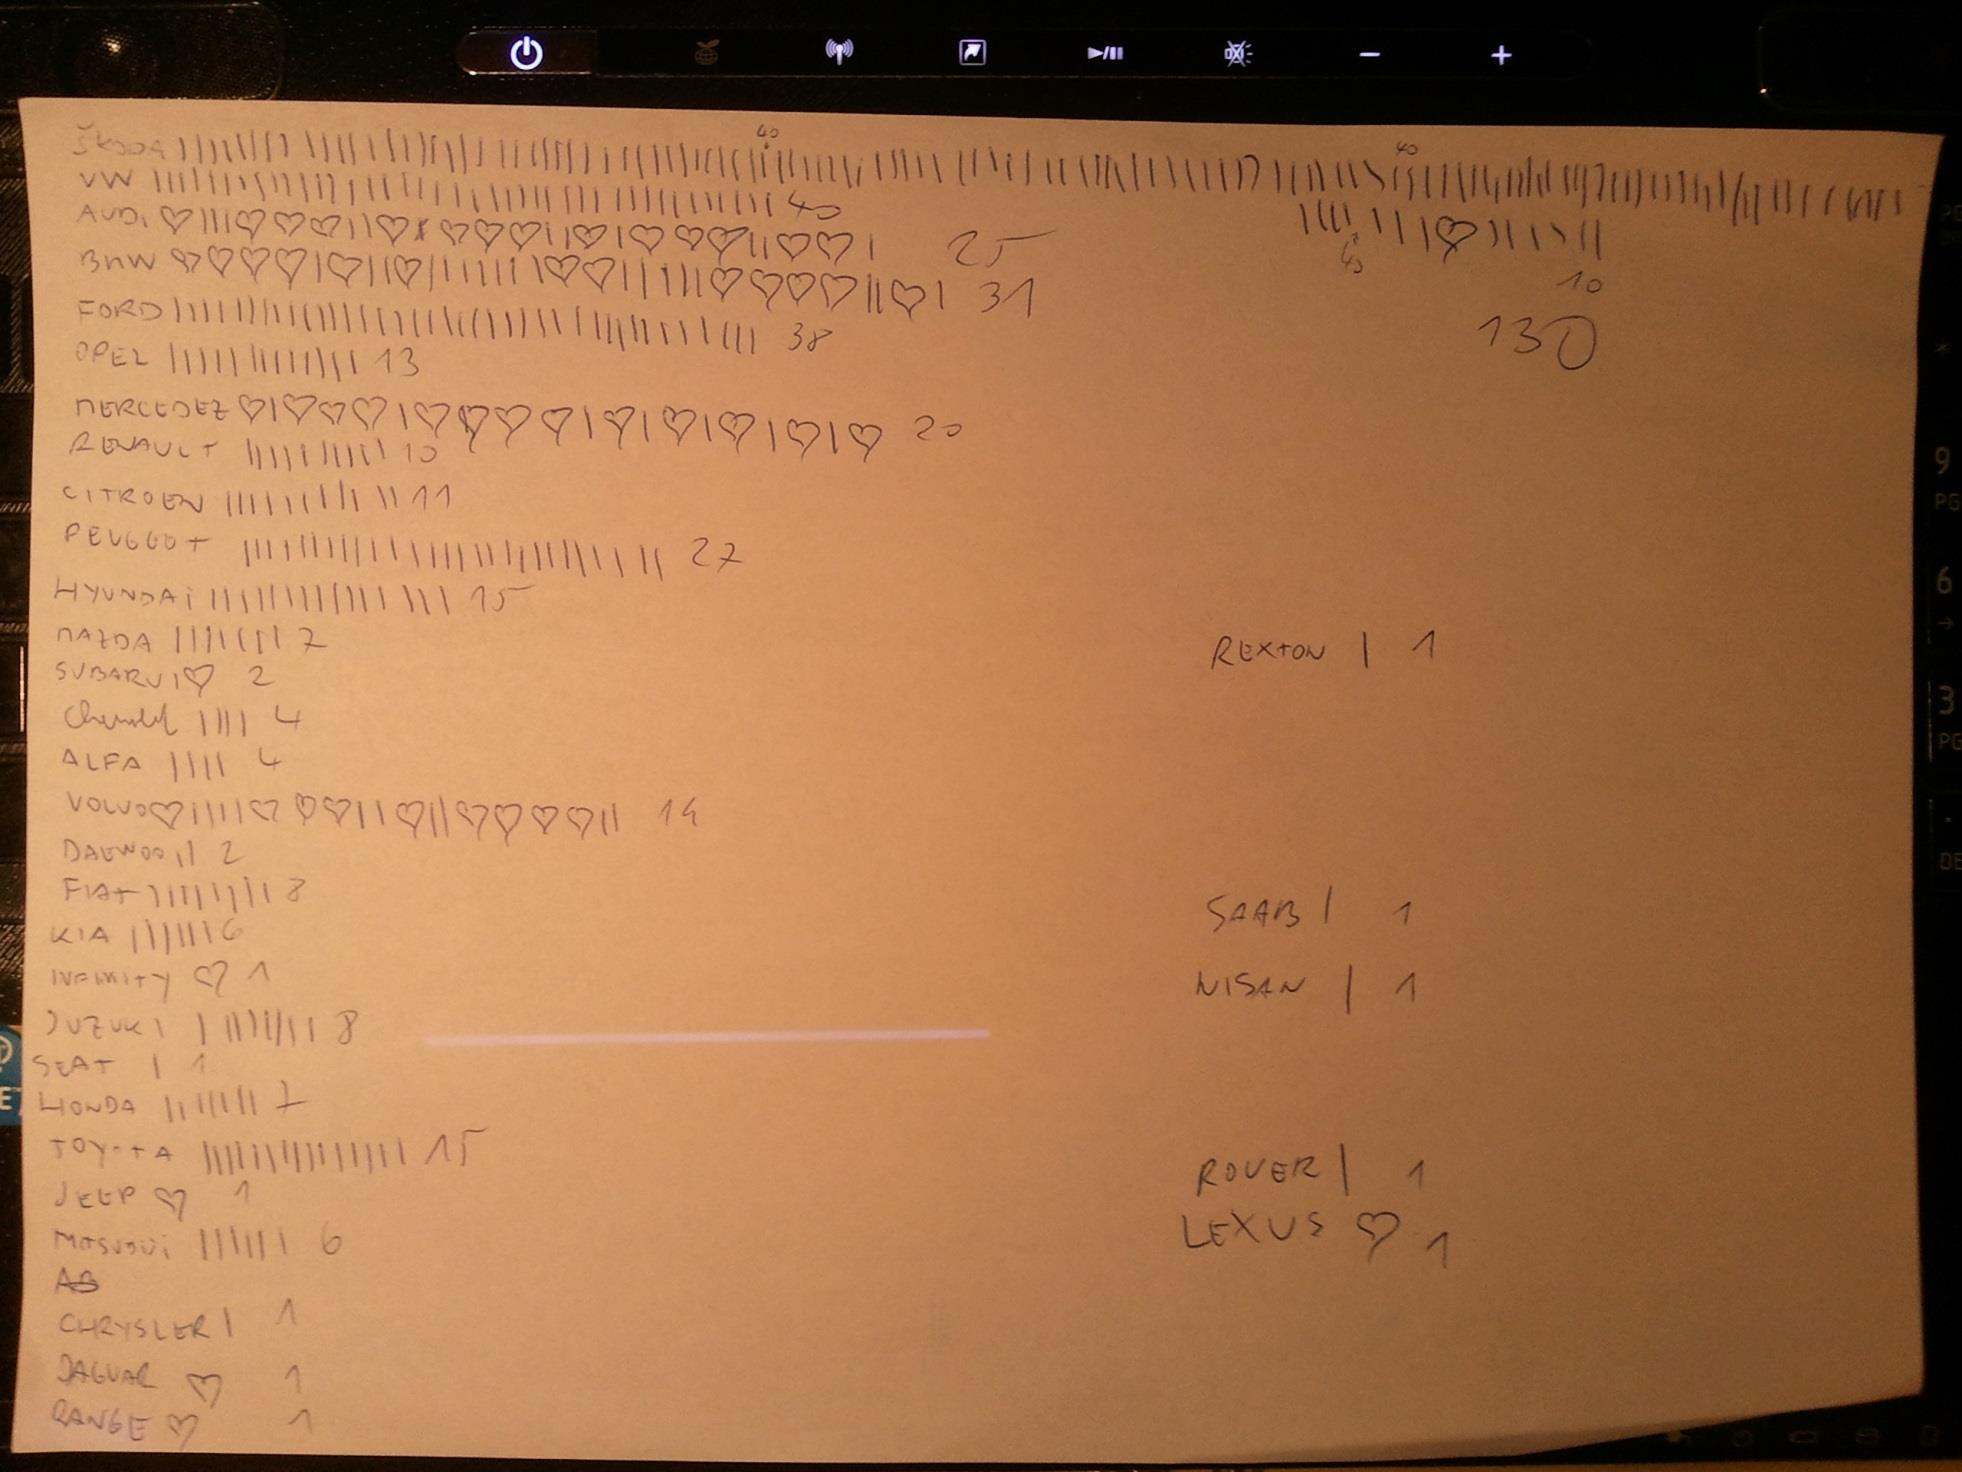 40 40
ŠKODA
VW 40
AUDi 25
40
BMW 31
10
FORD 38
130
OPEL 13
MERCEDEZ 20
RENAULT 10
CITROEN 11
PEUGGOT 27
HYUNDAi 15
MAZDA 7
REXTON 1
SUBARU 2
4
ALFA 4
VOLVO 14
DAEWOO 2
FIAT 8
SAAB 1
KIA 6
INFINITY 1
NISAN 1
SUZUKI 8
SEAT 1
HONDA 7
TOYOTA 15
ROVER 1
JEEP 1
LEXUS 1
6
CHRYSLER 1
JAGUAR 1
RANGE 1
9
PG
6
3
PG